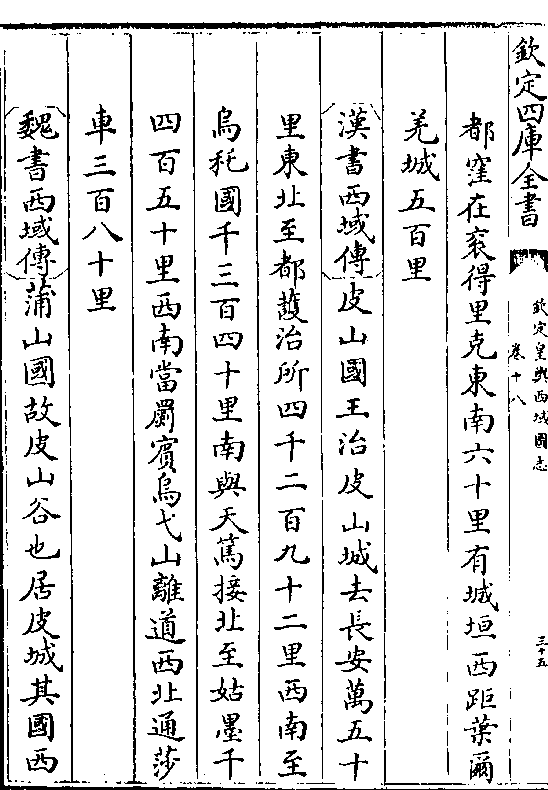 欽定四庫全書
欽定皇輿西域圖志
卷十八
三十五
都窪在裘得里克東南六十里有城垣西距葉爾
羌城五百里
漢書西域傳皮山國王治皮山城去長安萬五十
里東北至都護治所四千二百九十二里西南至
烏秅國千三百四十里南與天篤接北至姑墨千
四百五十里西南當罽賓烏弋山離道西北通莎
車三百八十里
魏書西域傳蒲山國故皮山谷也居皮城其國西